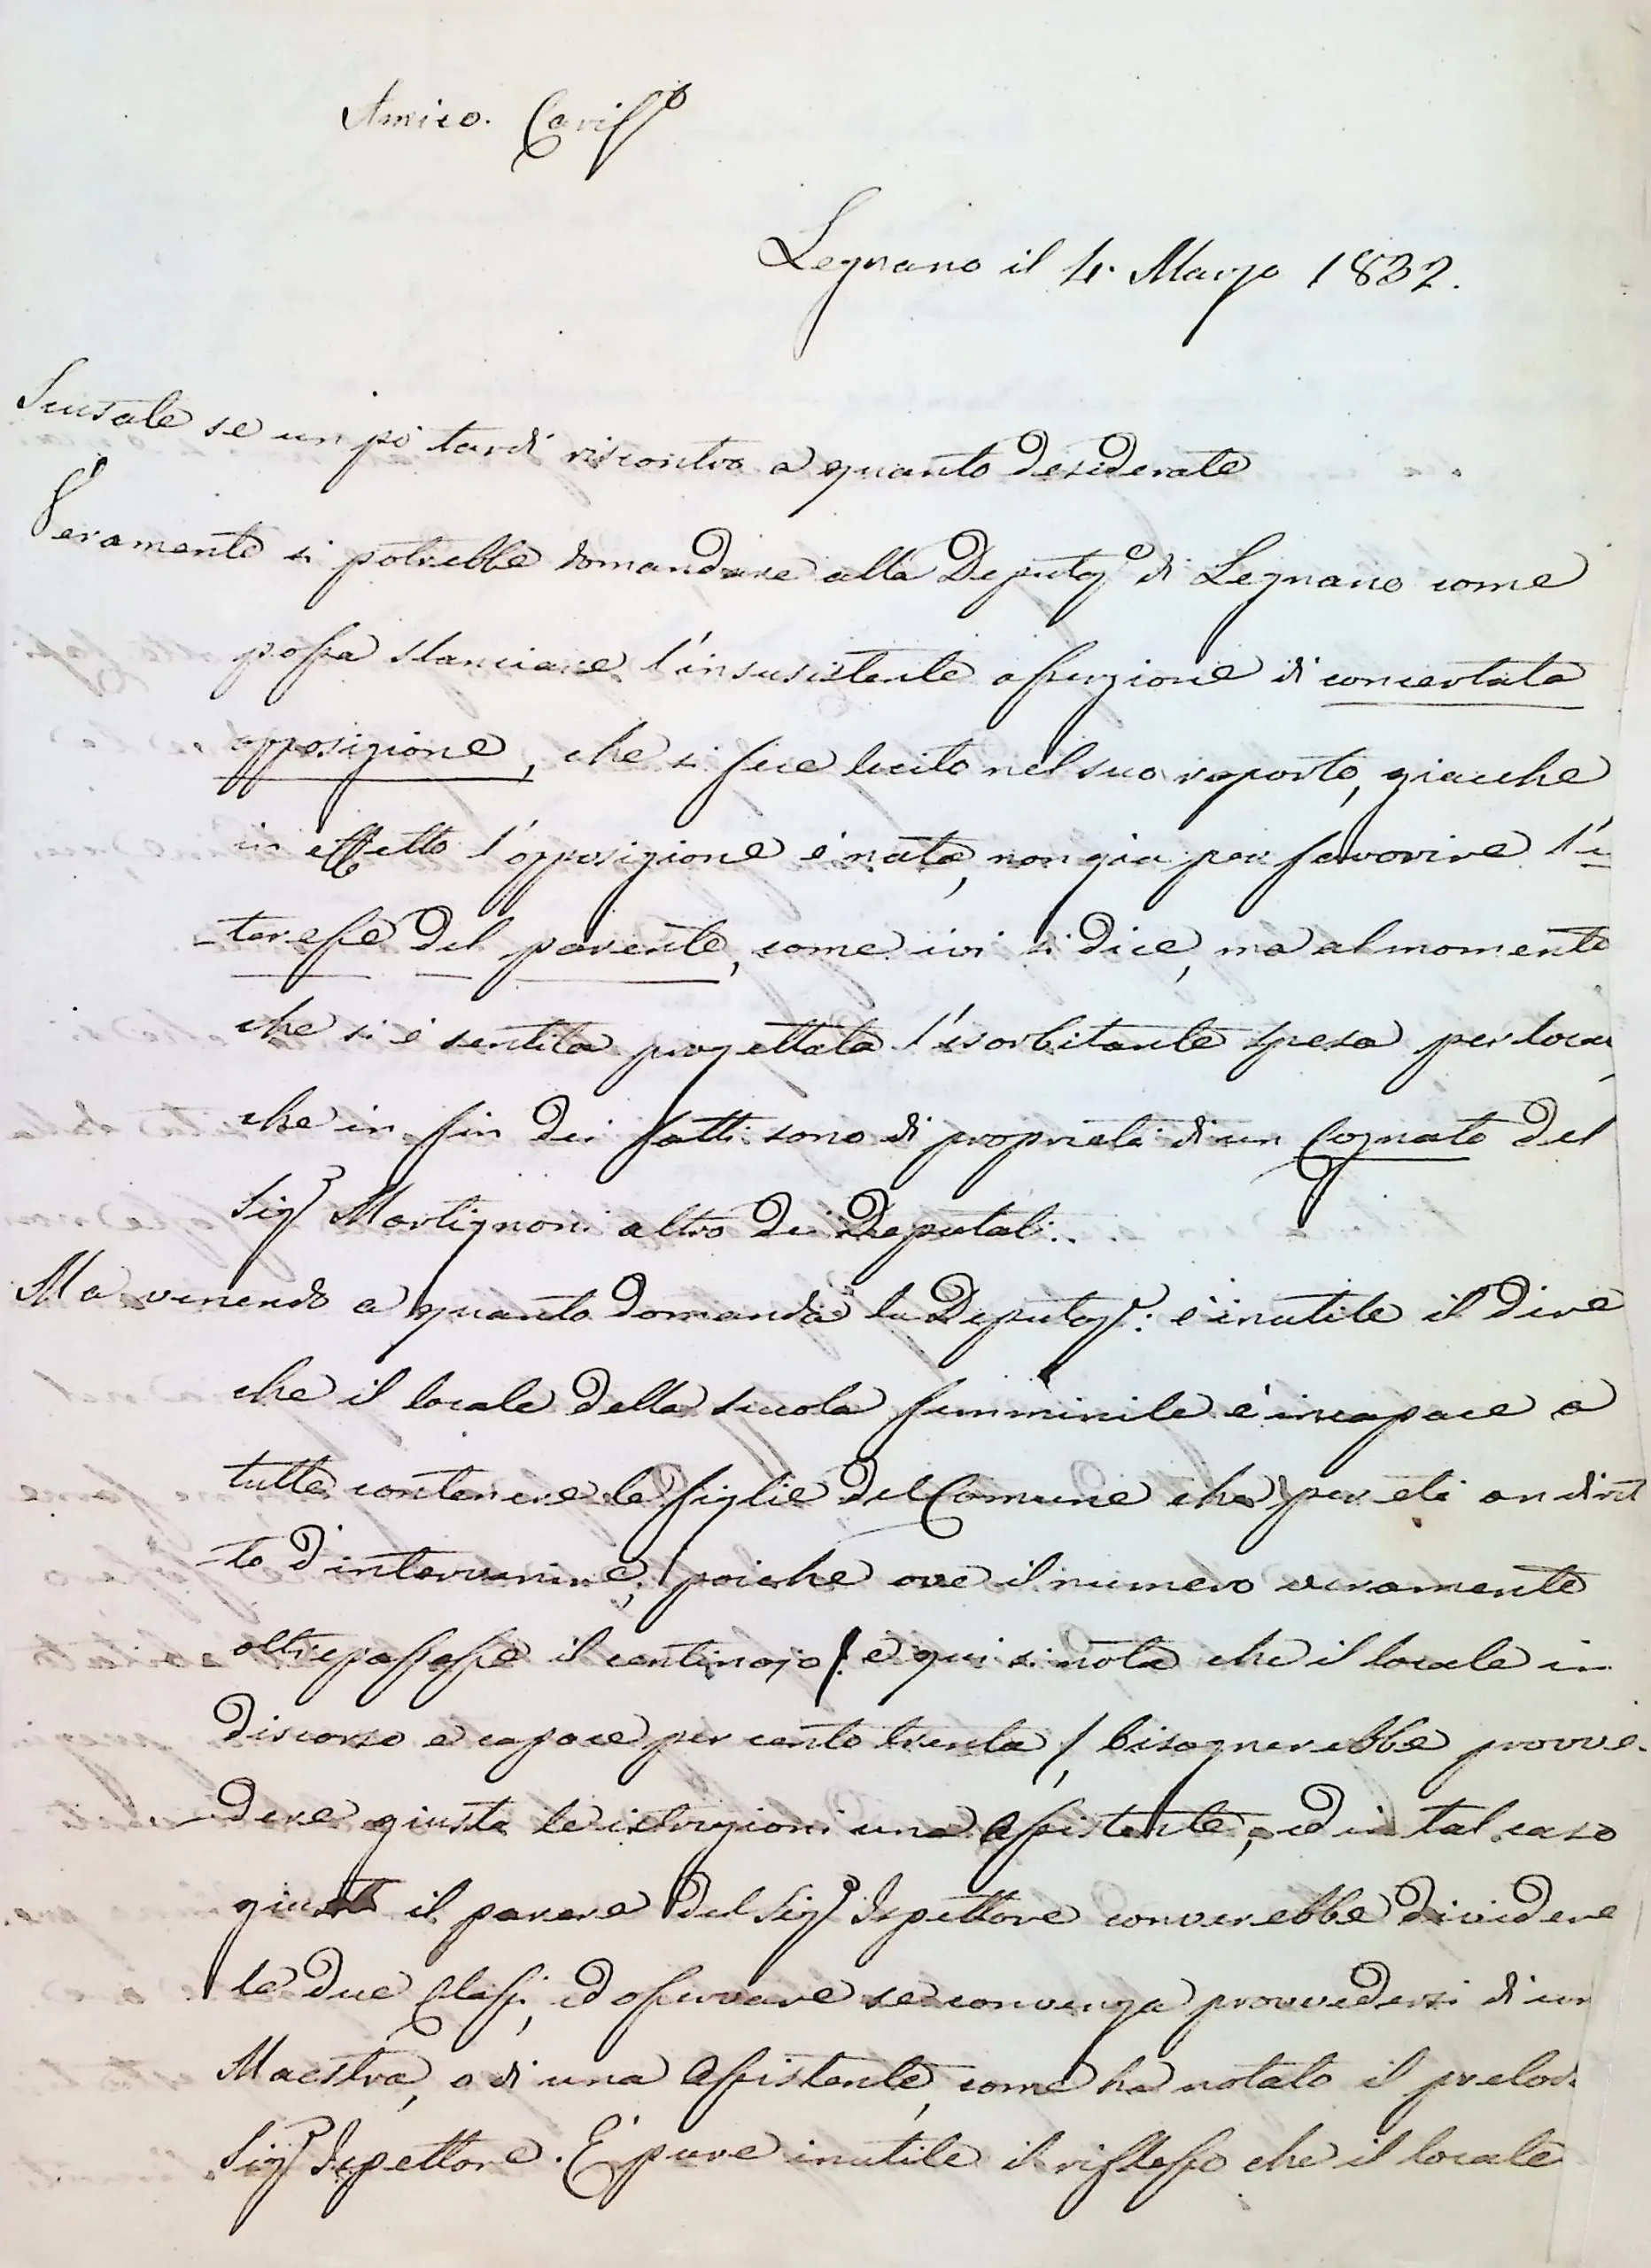 Amico. Cariss.o
Legnano il 4. Marzo 1832.
Scusate se un pò tardi riscontro a quanto desiderate
Veramente si potrebbe domandare alla Deputaz.e di Legnano come
possa slanciare l'insusistente asserzione di concertata
opposizione, che si fece lecito nel suo raporto, giacche
in effetto l'opposizione è nata, non già per favorire l'i
-teresse del parente, come ivi si dice, ma al momento
che si è sentita progettata l'esorbitante spesa per locali
che in fin dei fatti sono di proprietà di un Cognato del
Sig.r Martignoni altro dei Deputati.
Ma venendo a quanto domanda la Deputaz.e: è inutile il dire
che il locale della scuola femminile è incapace a
tutte contenere le figlie del Comune che per età an dirit
-to d'intervenire; poiche ove il numero veramente
oltrepassasse il centinajo /: e qui si nota che il locale in
discorso è capace per cento trenta / bisognerebbe provve-
-dere giusta le istruzioni una assistente, ed in tal caso
giusta il parere del Sig.r Ispettore converebbe dividere
le due Classi, ed osservare se convenga provvedersi di un
Maestra, o di una assistente, come ha notato il prelod.
Sig.r Ispettore. È pure inutile il riflesso che il locale